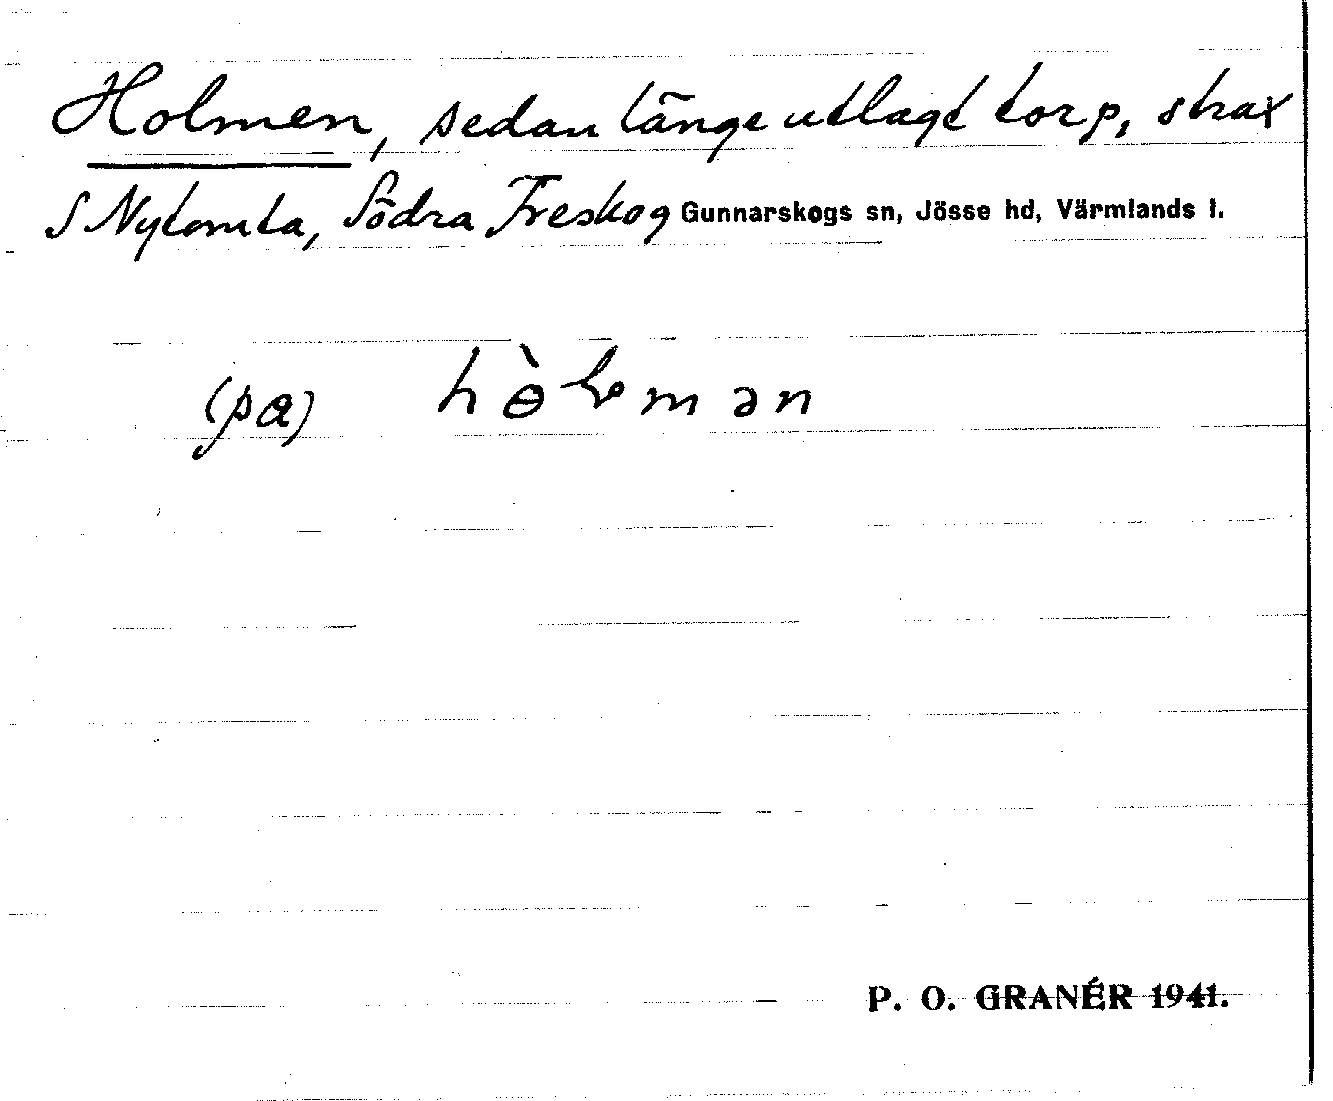 Holmen, sedan länge utlagt torp, strax
S Nytomta, Södra Treskog Gunnarskogs sn, Jösse hd, Värmlands l.
(på) hòɵɽmən
P. O. GRANÉR 1941.